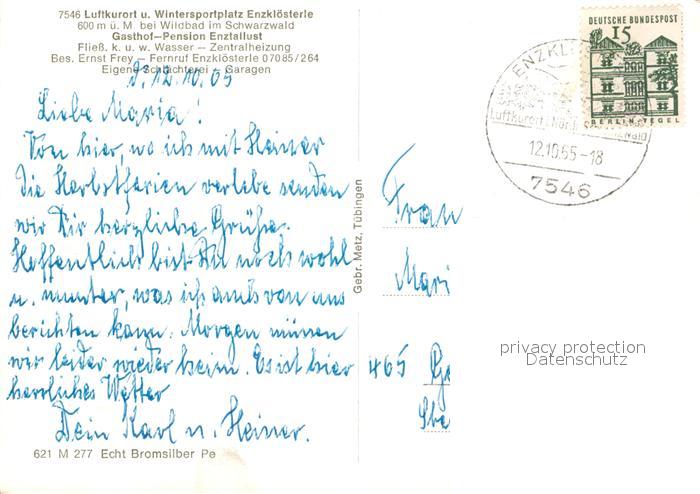 7546 Luftkurort u. Wintersportplatz Enzklösterle
600 m ü. M. bei Wildbad im Schwarzwald
Gasthof-Pension Enztallust
Fließ. k. u. w. Wasser – Zentralheizung
Bes. Ernst Frey – Fernruf Enzklösterle 07085/264
Eigene Schlächterei – Garagen
12.10.65
Liebe Maria!
Von hier, wo ich mit Heiner
die Herbstferien verlebe senden
wir Dir herzliche Grüße.
Hoffentlich bist Du noch wohl
u. munter, was ich auch von uns
berichten kann. Morgen müssen
wir leider wieder heim. Es ist hier
herrliches Wetter
Dein Karl u. Heiner.
621 M 277 Echt Bromsilber Pe
Gebr. Metz, Tübingen
DEUTSCHE BUNDESPOST
15
BERLIN-TEGEL
ENZKL
Luftkurort
12.10.65-18
7546
Frau
Mari
465 Ge
privacy protection
Datenschutz